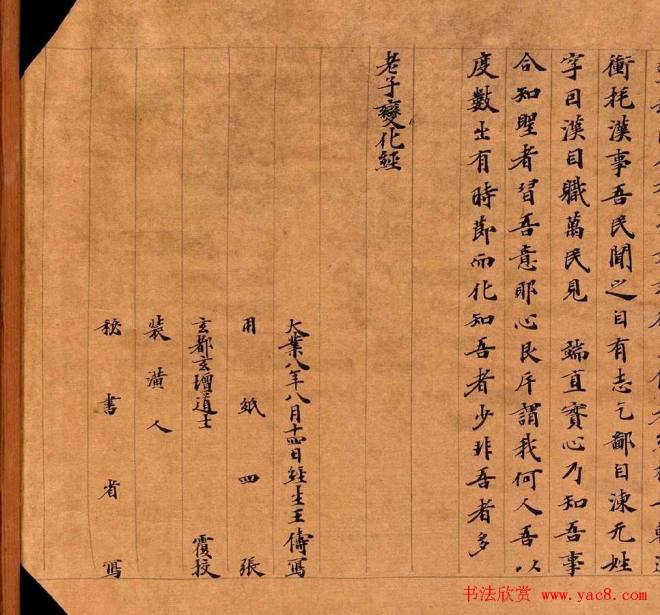 衝托漢事吾民聞之自有志乞鄙自涑元姓
字因漢自職萬民見 端直實心乃知吾事
合知聖者習吾意耶心艮斤謂我何人吾以
度數出有時節而化知吾者少非吾者多
老子變化經
大業八年八月十四日經生王儔寫
用紙四張
玄都玄壇道士 覆校
裝潢人
秘書省寫
书法欣赏 www.yac8.com